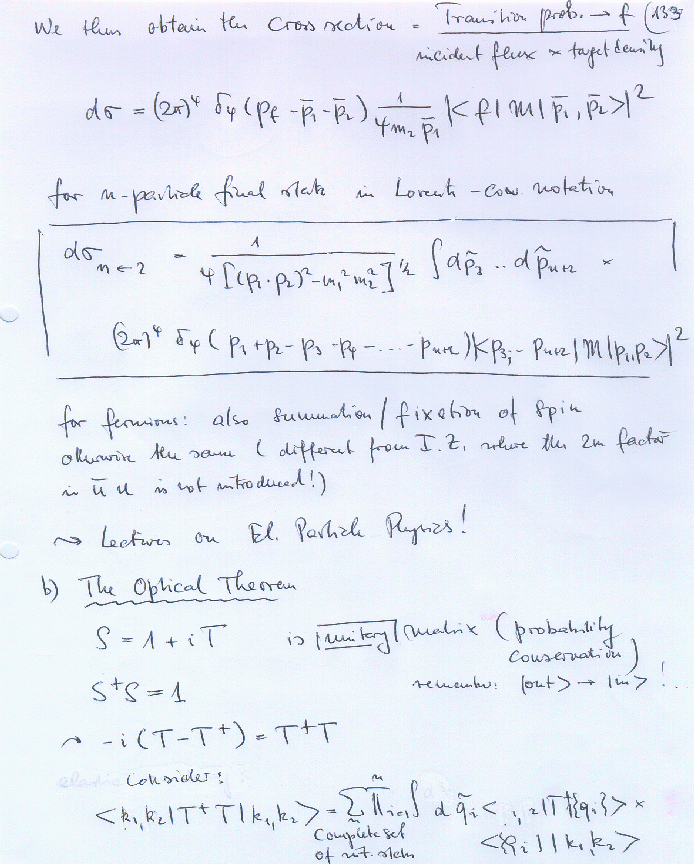 We thus obtain the cross section = Transition prob. → f (133
incident flux × target density
dσ = (2π)⁴ δ₄(p_f - p̄₁ - p̄₂) 1/(4m₂ p̄₁) |<f|M|p̄₁, p̄₂>|²
for n-particle final state in Lorentz-cov. notation
dσ_{n←2} = 1/(4[(p₁·p₂)² - m₁²m₂²]^{1/2}) ∫dp̃₃ .. dp̃_{n+2} ×
(2π)⁴ δ₄(p₁+p₂-p₃-p₄-....-p_{n+2})|<p₃,..p_{n+2}|M|p₁,p₂>|²
for fermions: also summation/fixation of spin
otherwise the same (different from I.Z. where the 2m factor
in ū u is not introduced!)
⇝ Lectures on El. Particle Physics!
b) The Optical Theorem
S = 1 + iT is unitary matrix (probability
conservation)
S⁺S = 1 remember: |out> → |in> !..
⇝ -i(T-T⁺) = T⁺T
Consider:
<k₁,k₂|T⁺T|k₁,k₂> = Σ_n ∏ⁿ_{i=1} ∫ dq̃_i < ,, ₂|T⁺|{q_i}> ×
Complete set <{q_i}| |k₁,k₂>
of int. states